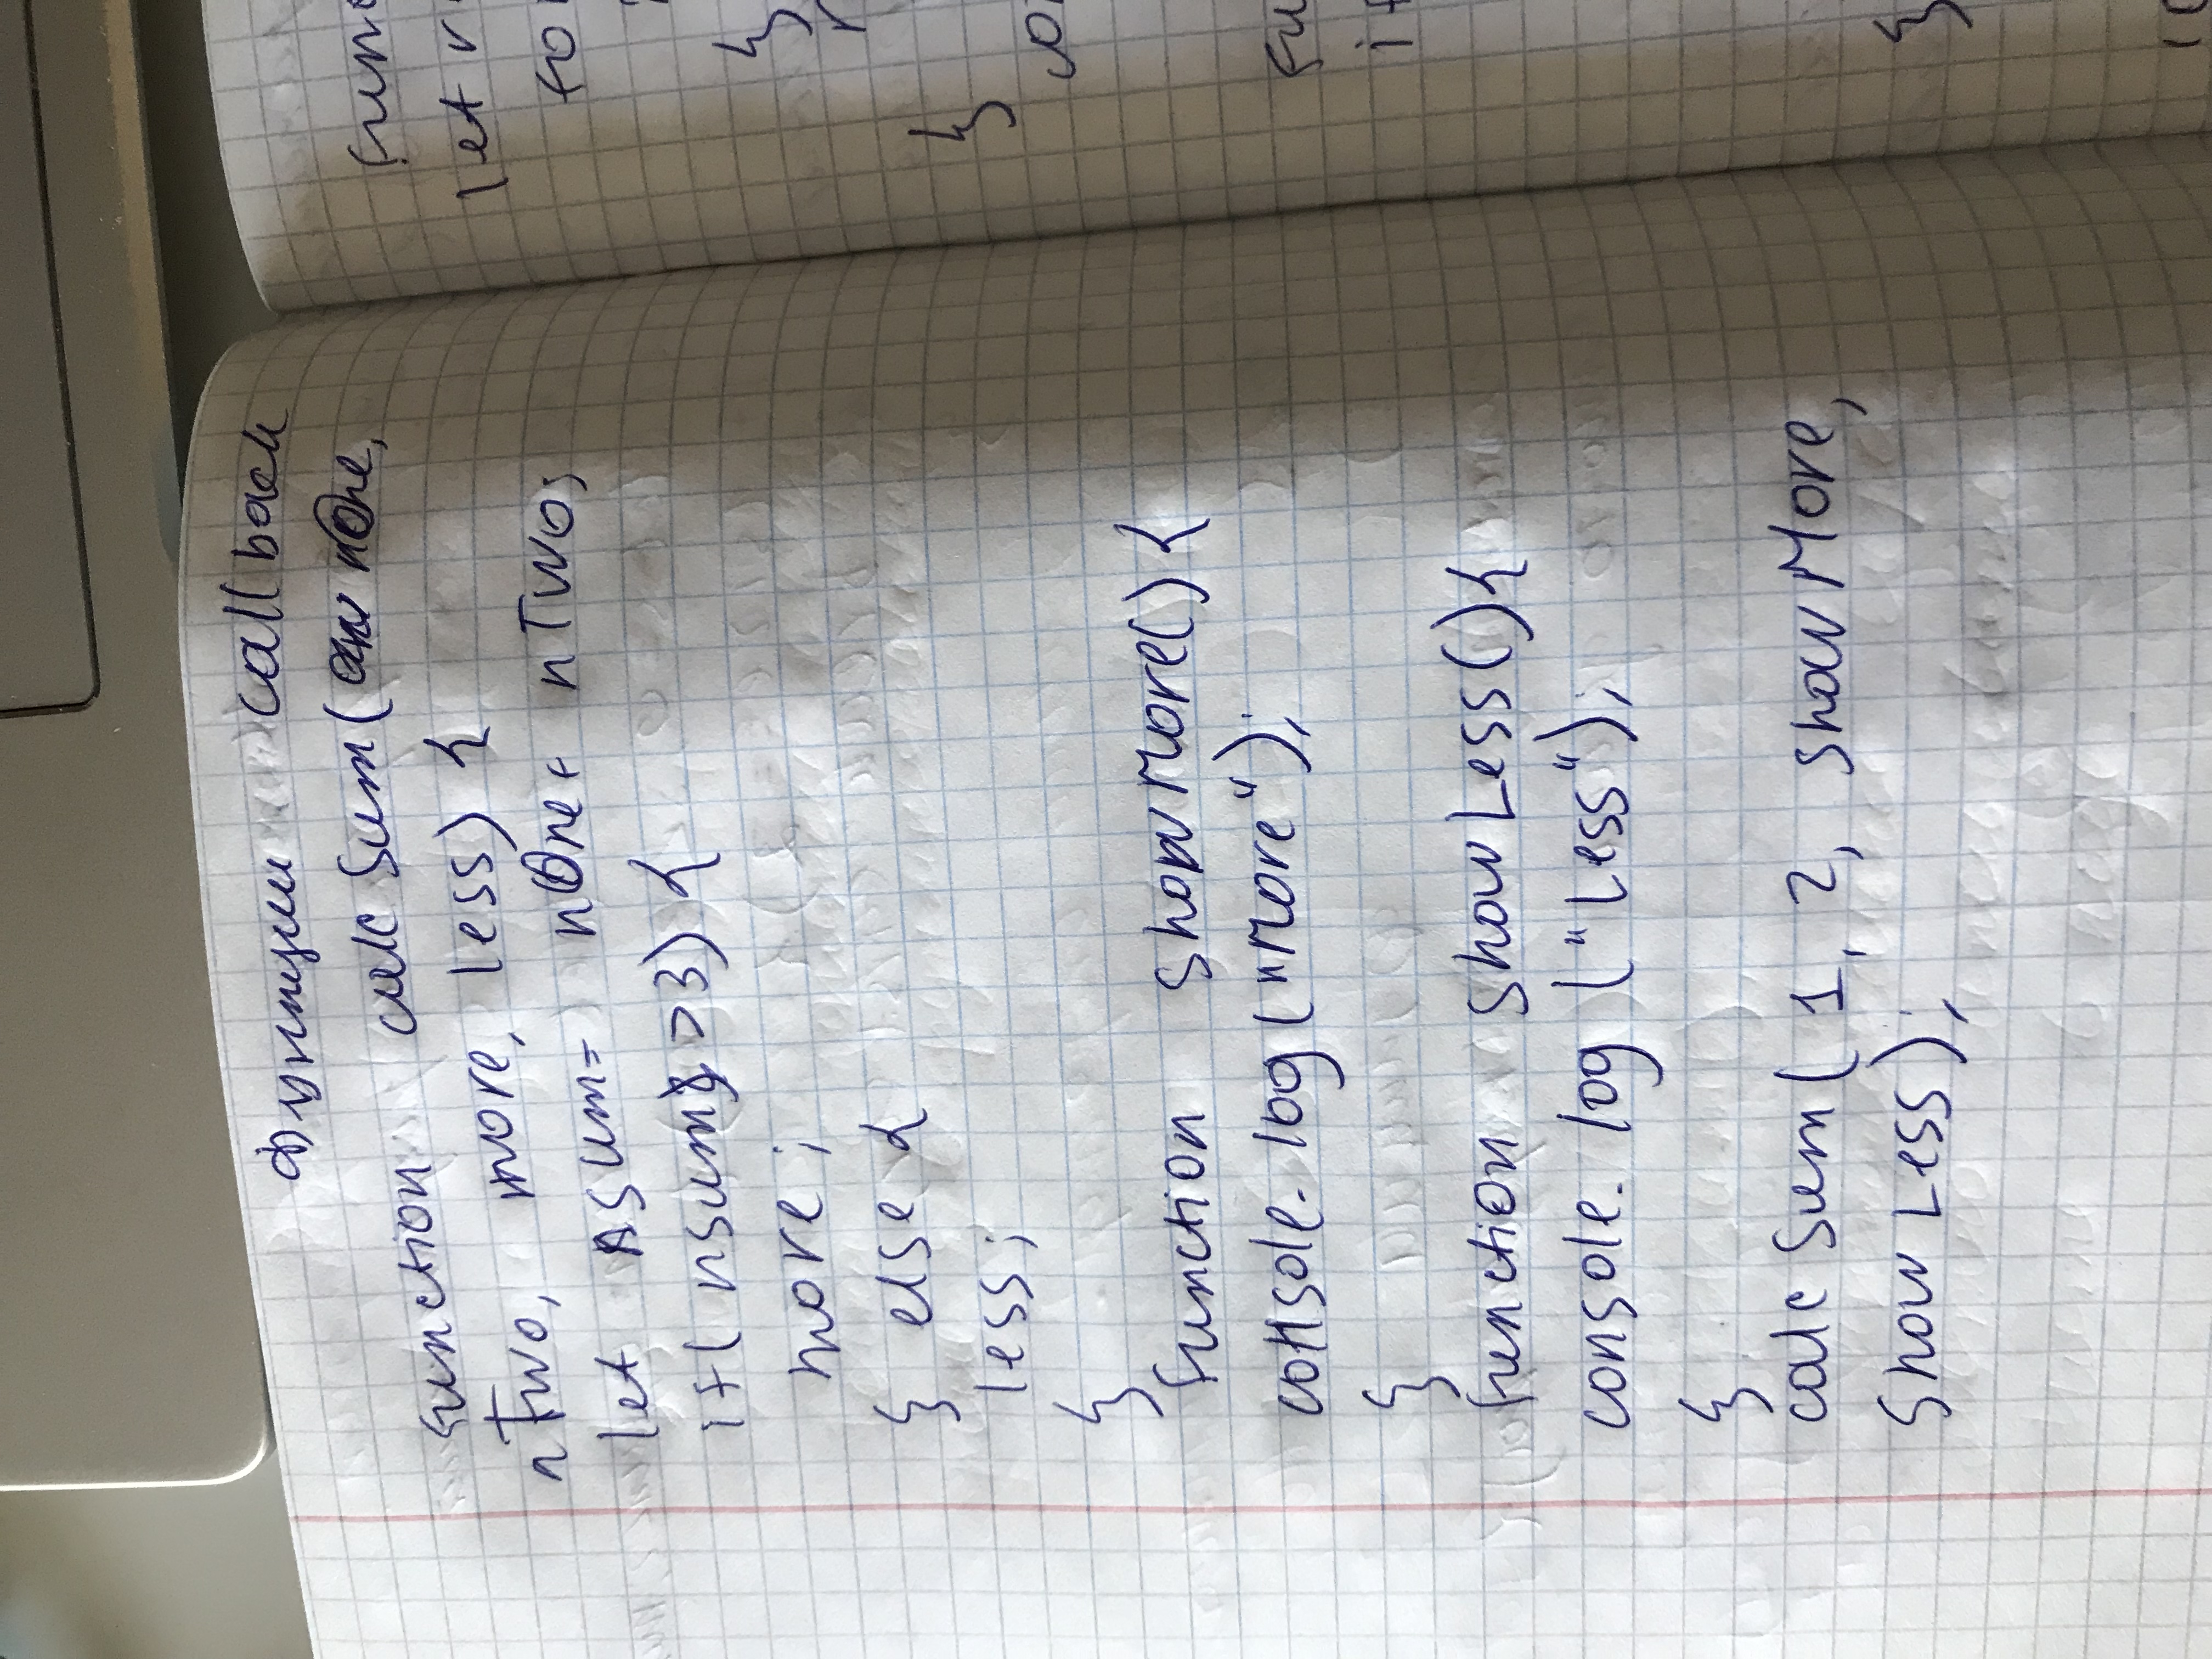 Функции callback
function calcSum( nOne,
nTwo, more, less) {
let nsum= nOne+ nTwo;
if( nsum >3) {
more;
} else {
less;
}
function showMore(){
console.log("More");
}
function showLess(){
console.log ("Less");
}
calcSum( 1, 2, showMore,
showLess);
let
}
}
if
}